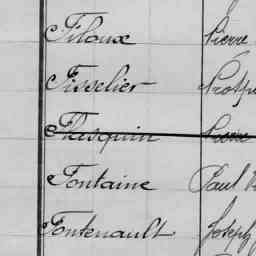 Filoux Pierre
Fisselier Prosp
Flesquin Pierre
Fontaine Paul
Fontenault Joseph